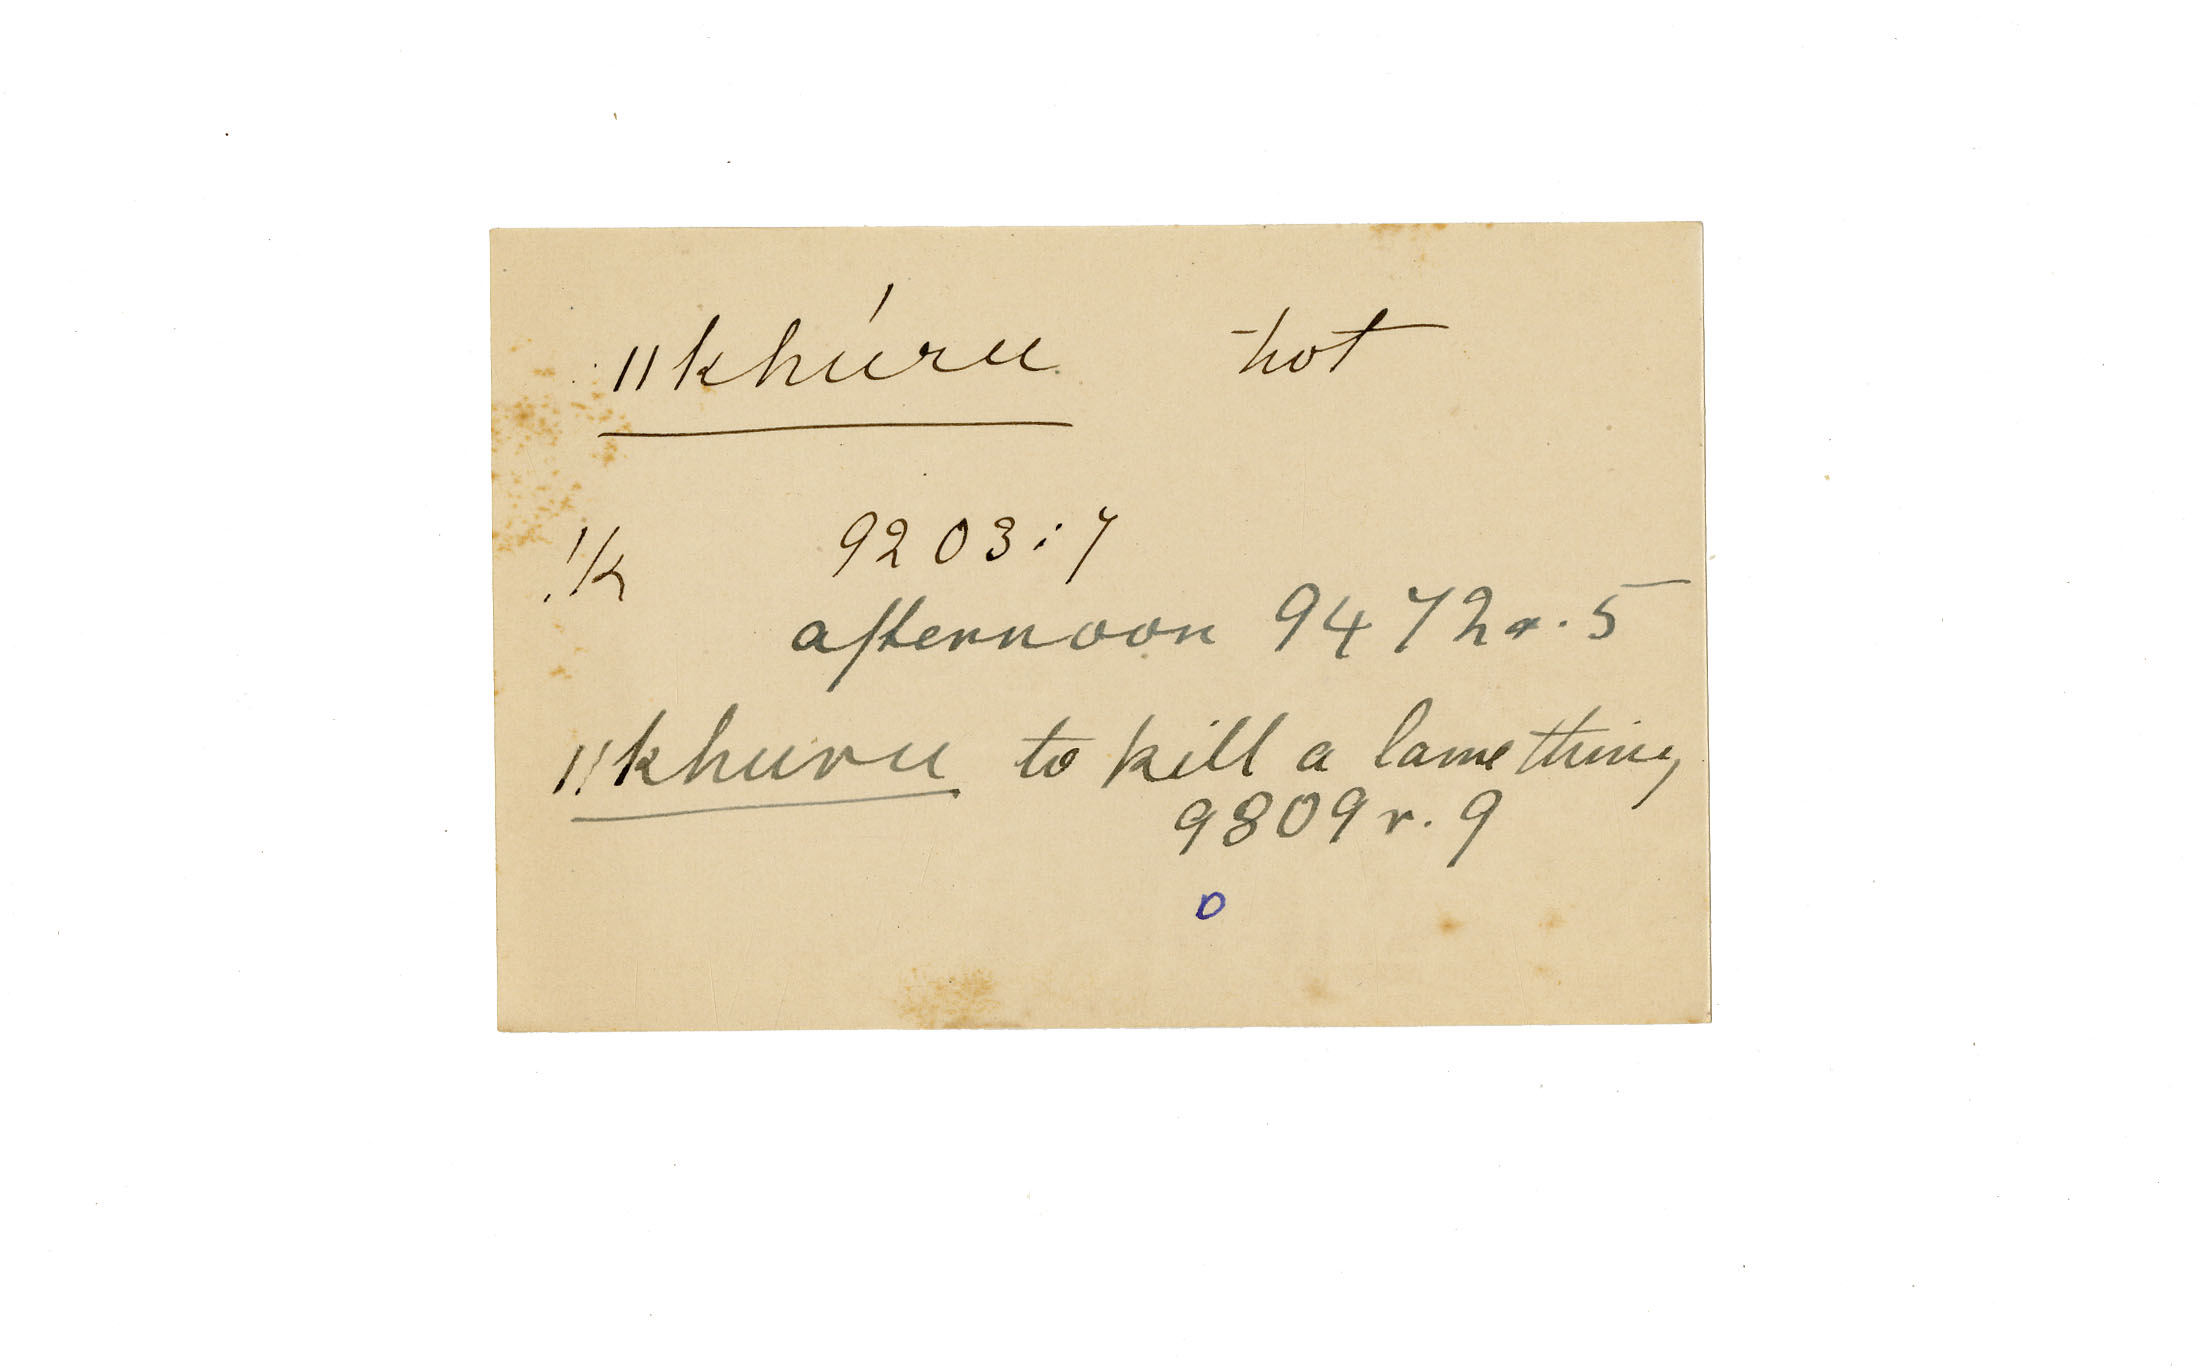 ǁkhúru hot
!k 9203:7
afternoon 9472r.5
ǁkhuru to kill a lame thing
9809r.9
o